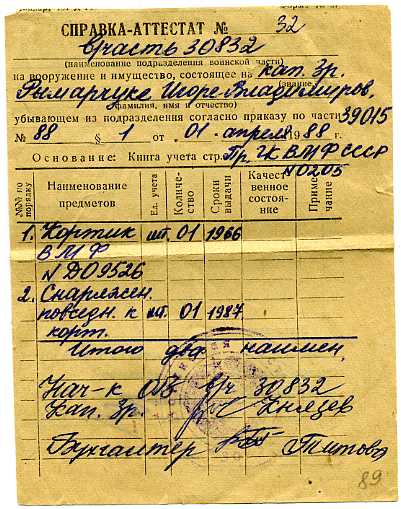 СПРАВКА-АТТЕСТАТ № 32
в/часть 30832
(наименование подразделения воинской части)
на вооружение и имущество, состоящее на кап. 3р.
(звание,
Рымарчуке Игоре Владимиров.
фамилия, имя и отчество)
убывающем из подразделения согласно приказу по части 39015
№ 88 § 1 от „01" апреля 1988 г.
Основание: Книга учета стр. Пр. ГК ВМФ СССР
N 0205
№№ по порядку Наименование предметов Ед. учета Количество Сроки выдачи Качественное состояние Примечание
1. Кортик шт. 01 1966
ВМФ
N Д09526
2. Снаряжен.
повседн. к шт. 01 1987
корт.
Итого два наимен.
Нач-к в/ч 30832
Кап. 3р. Князев
Бухгалтер Титова
89